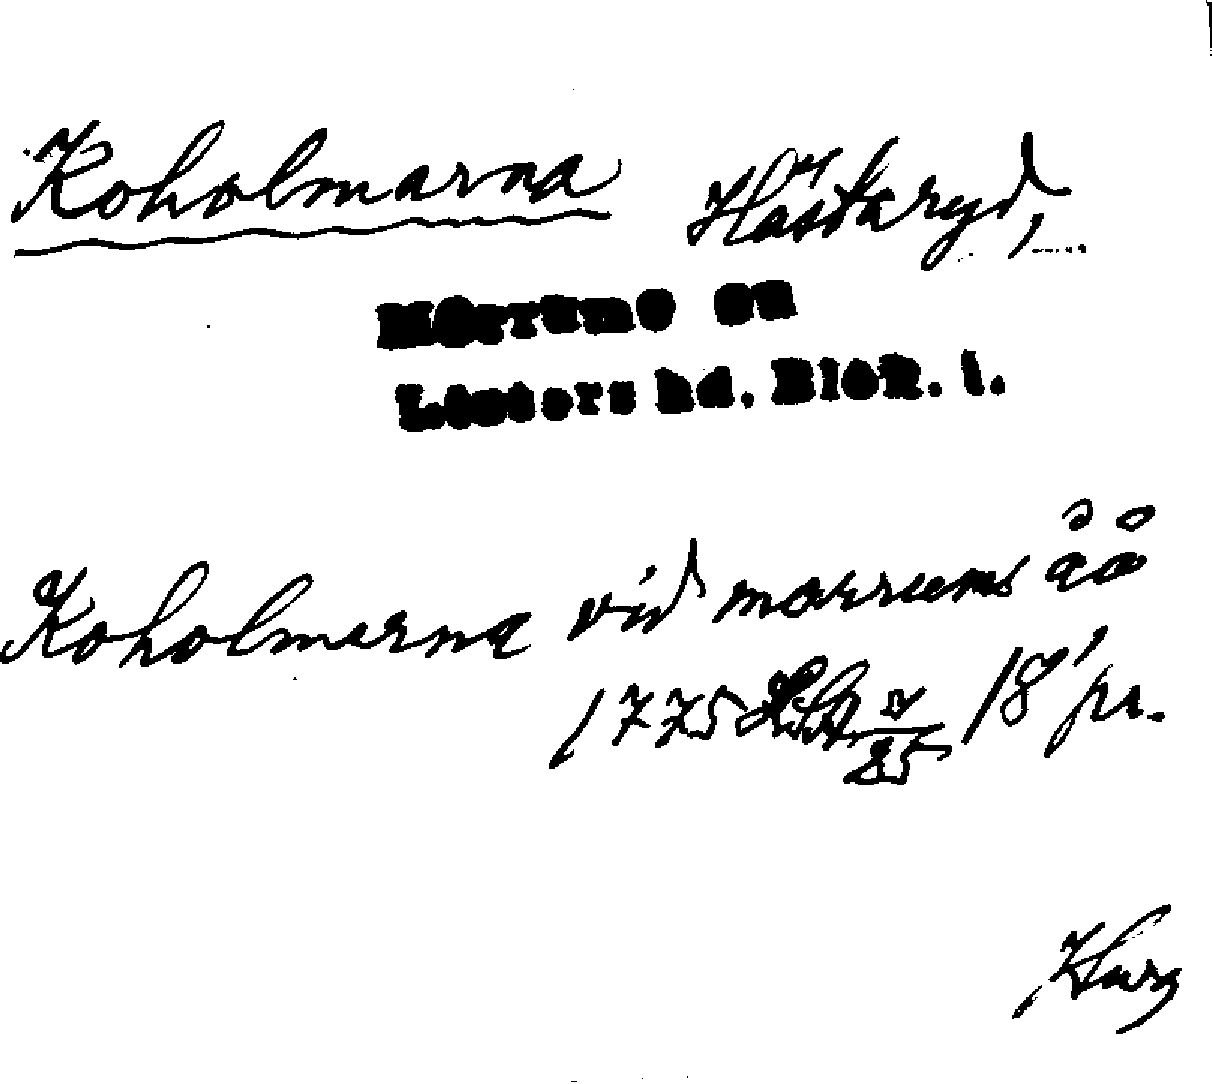 Koholmarna Hästaryd,
Mörrums sn
Listers hd. Blek. l.
Koholmarna vid morrums åå
1775 18 pr.